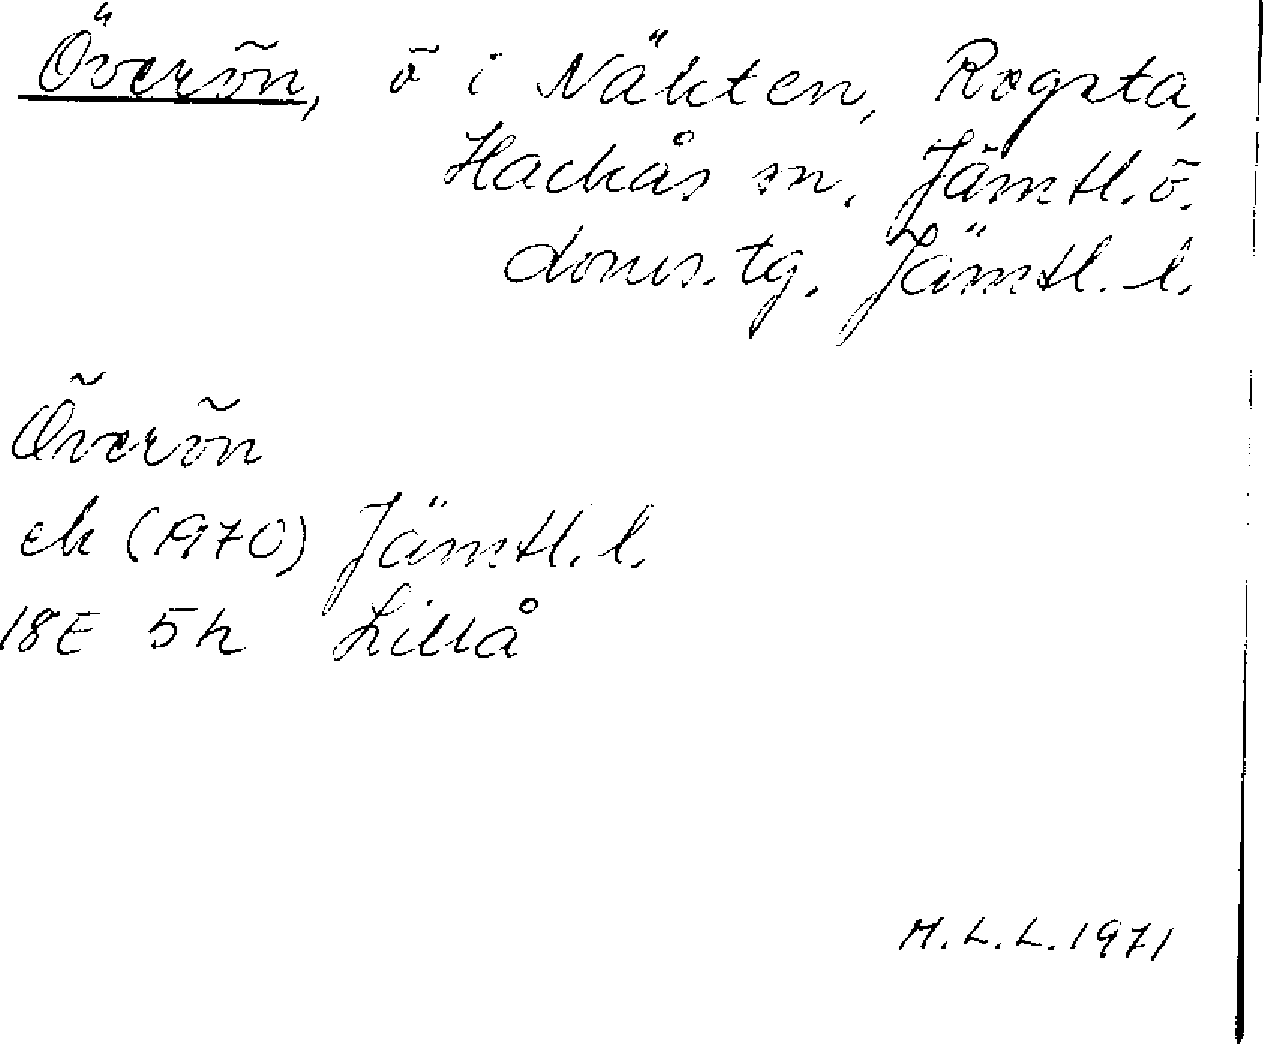 Överön, ö i Näkten, Rogsta,
Hackås sn. Jämtl. ö.
doms. tg. Jämtl. l.
Överön
ek (1970) Jämtl. l.
18E 5h Lillå
M. L. L. 1971